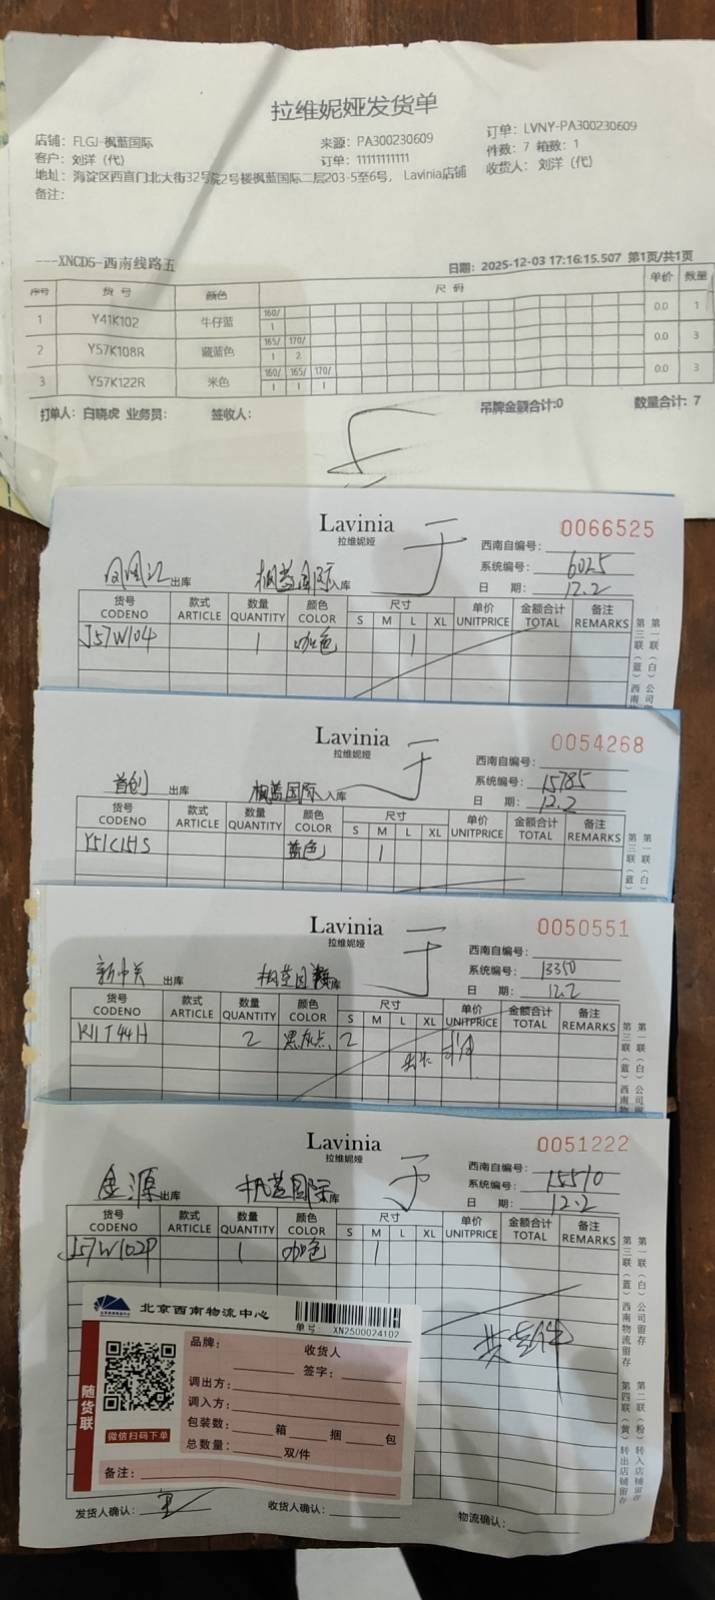 拉维妮娅发货单
店铺：FLGJ-枫蓝国际 来源：PA300230609 订单：LVNY-PA300230609
客户：刘洋（代） 订单：11111111111 件数：7 箱数：1
地址：海淀区西直门北大街32号院2号楼枫蓝国际二层203-5至6号， Lavinia店铺 收货人：刘洋（代）
备注：
---XNCD5-西南线路五 日期：2025-12-03 17:16:15.507 第1页/共1页
序号 货 号 颜色 尺 码 单价 数量
1 Y41K102 牛仔蓝 160/ 1 0.0 1
2 Y57K108R 藏蓝色 165/ 1 170/ 2 0.0 3
3 Y57K122R 米色 160/ 1 165/ 1 170/ 1 0.0 3
打单人：白晓虎 业务员： 签收人： 吊牌金额合计:0 数量合计：7
Lavinia 0066525
拉维妮娅
西南自编号：
出库 枫蓝国际入库 系统编号：6025
日 期：12.2
货号 款式 数量 颜色 尺寸 单价 金额合计 备注
CODENO ARTICLE QUANTITY COLOR S M L XL UNITPRICE TOTAL REMARKS
J57W104 1 咖色 1
第一联（白）公司
第三联（蓝）西南
Lavinia 0054268
拉维妮娅
西南自编号：
首创 出库 枫蓝国际入库 系统编号：15785
日 期：12.2
货号 款式 数量 颜色 尺寸 单价 金额合计 备注
CODENO ARTICLE QUANTITY COLOR S M L XL UNITPRICE TOTAL REMARKS
Y51C151S 蓝色 1
第一联（白）
第三联（蓝）
Lavinia 0050551
拉维妮娅
西南自编号：
新中关 出库 枫蓝国际库 系统编号：13350
日 期：12.2
货号 款式 数量 颜色 尺寸 单价 金额合计 备注
CODENO ARTICLE QUANTITY COLOR S M L XL UNITPRICE TOTAL REMARKS
K11T44H 2 黑灰点 2
第一联（白）公司留
第三联（蓝）西南物
Lavinia 0051222
拉维妮娅
西南自编号：
金源出库 枫蓝国际库 系统编号：15510
日 期：12.2
货号 款式 数量 颜色 尺寸 单价 金额合计 备注
CODENO ARTICLE QUANTITY COLOR S M L XL UNITPRICE TOTAL REMARKS
J57W102P 1 咖色 1
第一联（白）公司留存
第三联（蓝）西南物流留存
第二联（粉）转入店铺留存
第四联（黄）转出店铺留存
北京西南物流中心
单号 XN2500024102
随货联
微信扫码下单
品牌： 收货人
签字：
调出方：
调入方：
包装数： 箱 捆 包
总数量： 双/件
备注：
发货人确认： 收货人确认： 物流确认：